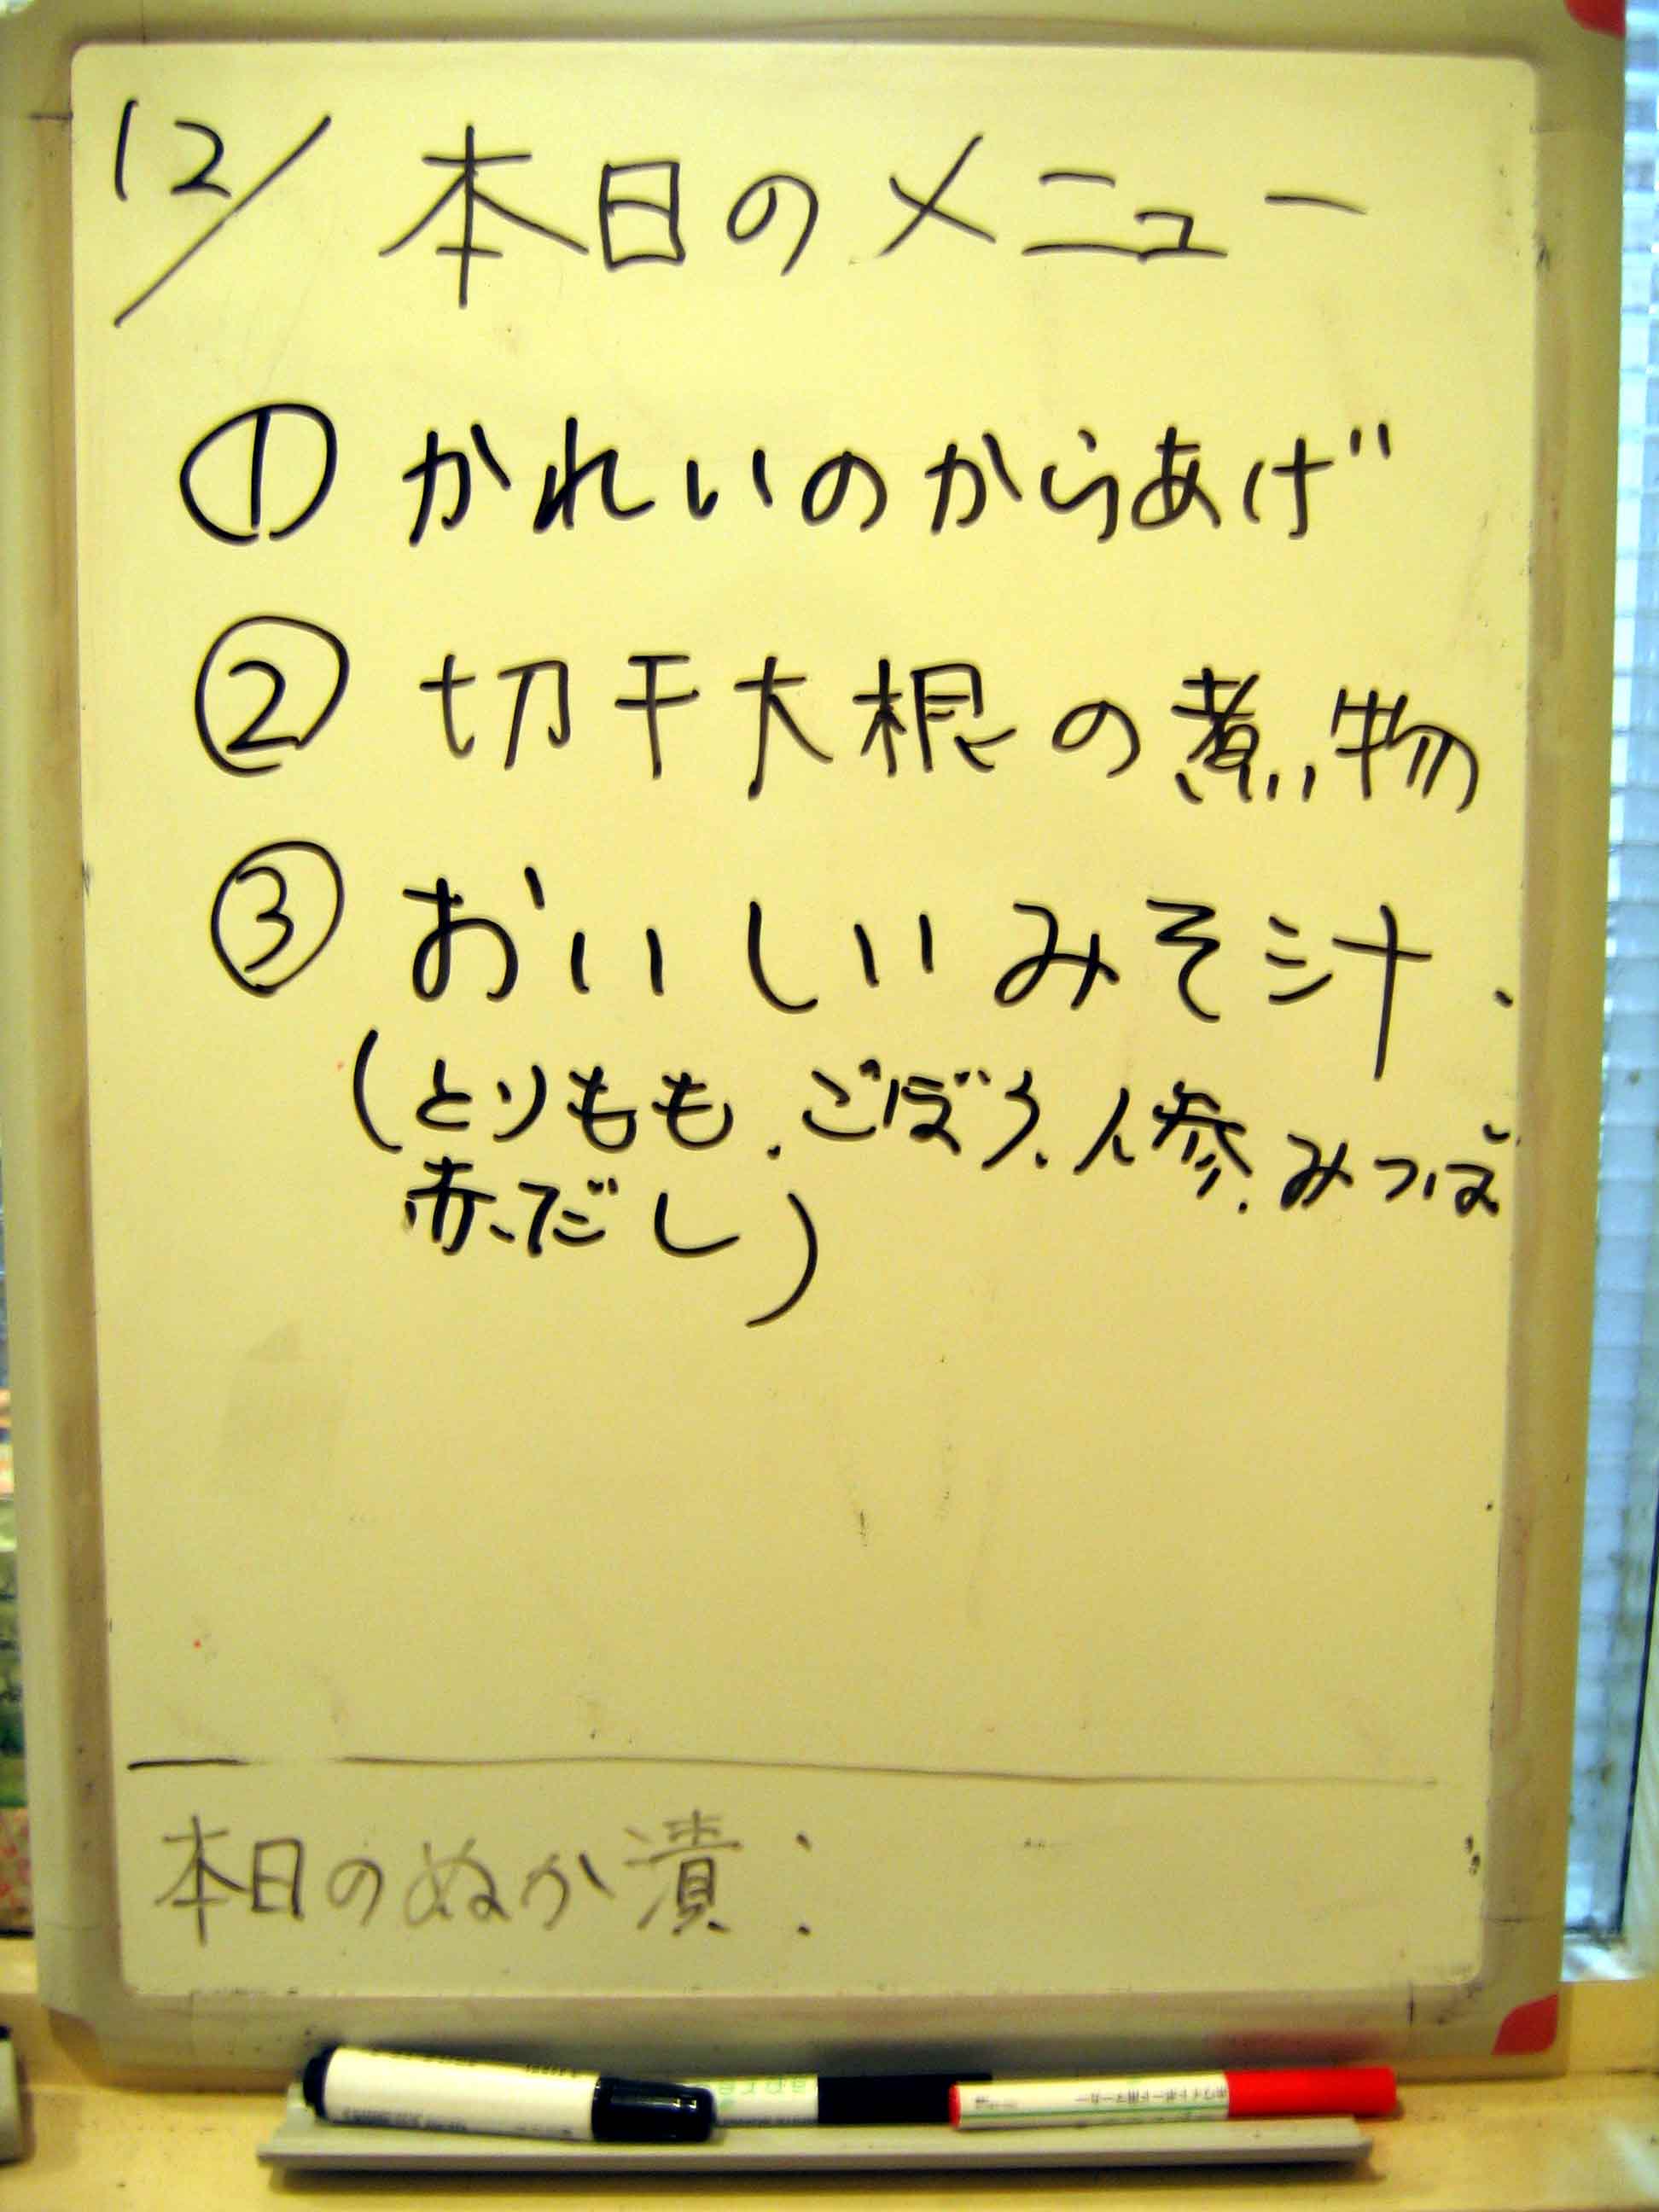 12/ 本日のメニュー
① かれいのからあげ
② 切干大根の煮物
③ おいしいみそ汁.
(とりもも、ごぼう、人参、みつば
赤だし)
本日のぬか漬: